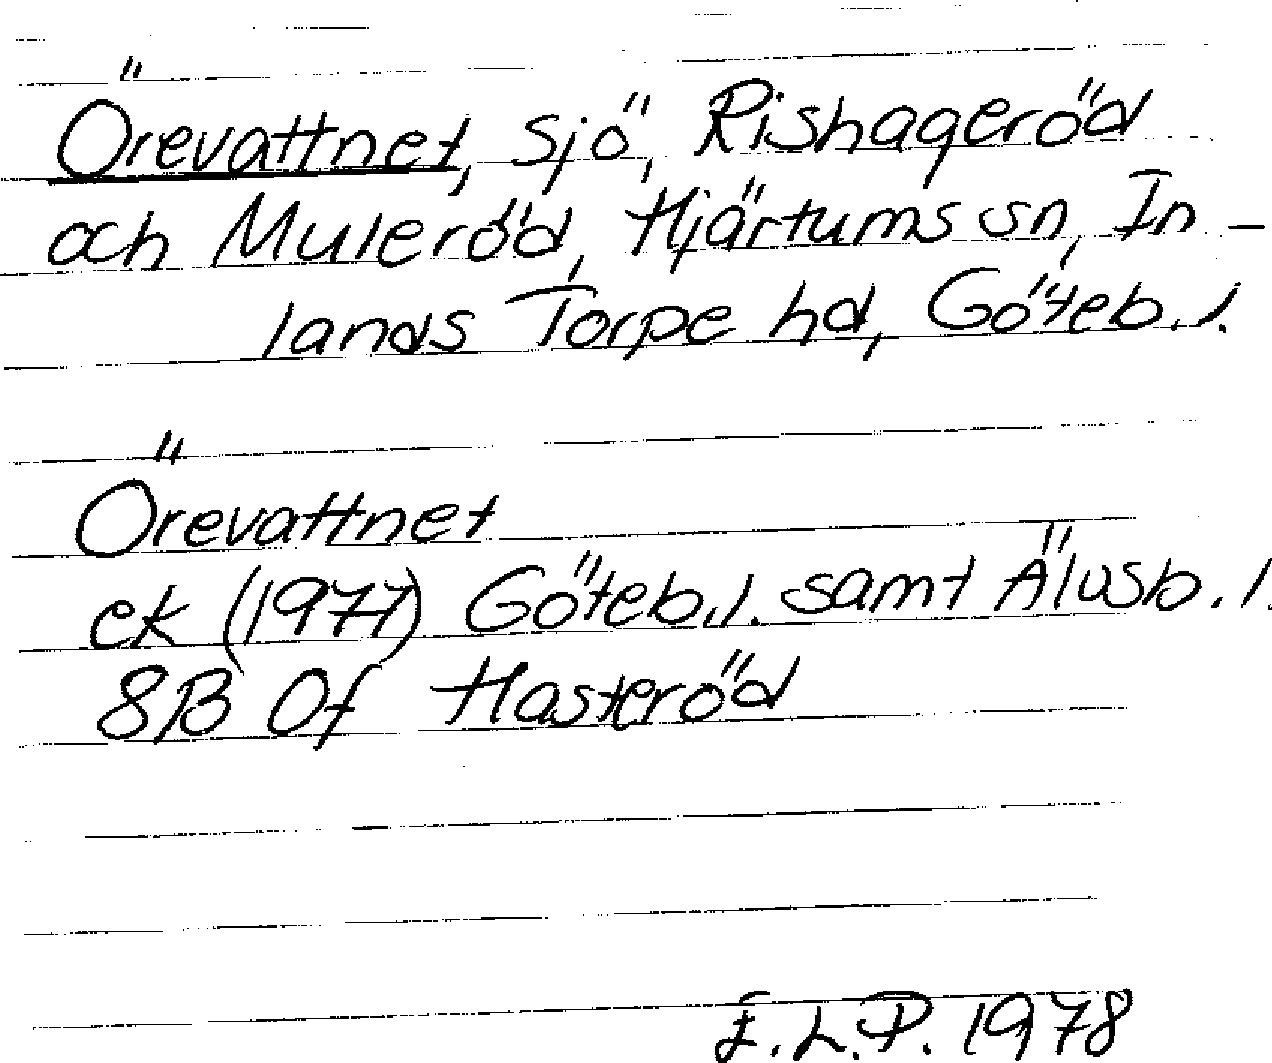 Örevattnet, sjö, Rishageröd
och Muleröd, Hjärtums sn, In-
lands Torpe hd, Göteb.l.
Örevattnet
ek (1977) Göteb.l. samt Älvsb.l.
8B 0f Hasteröd
E.L.P. 1978